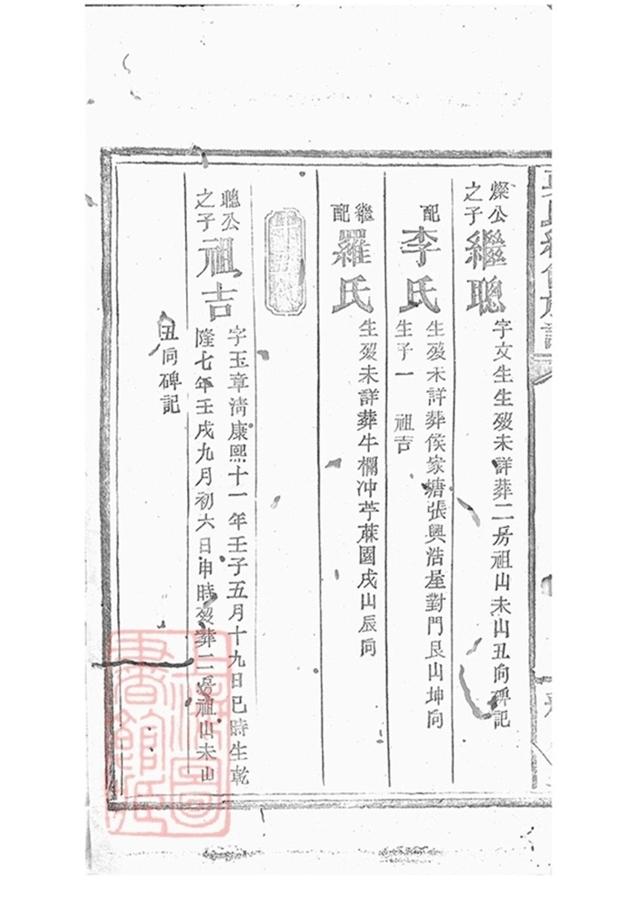 燦公之子 繼聰 字文生生歿未詳葬二房祖山未山丑向碑記
配 李氏 生歿未詳葬侯家塘張興浩屋對門艮山坤向
生子一 祖吉
繼配 羅氏 生歿未詳葬牛欄冲苧蔴園戌山辰向
聰公之子 祖吉 字玉章清康熙十一年壬子五月十九日巳時生乾
隆七年壬戌九月初六日申時歿葬二房祖山未山
丑向碑記